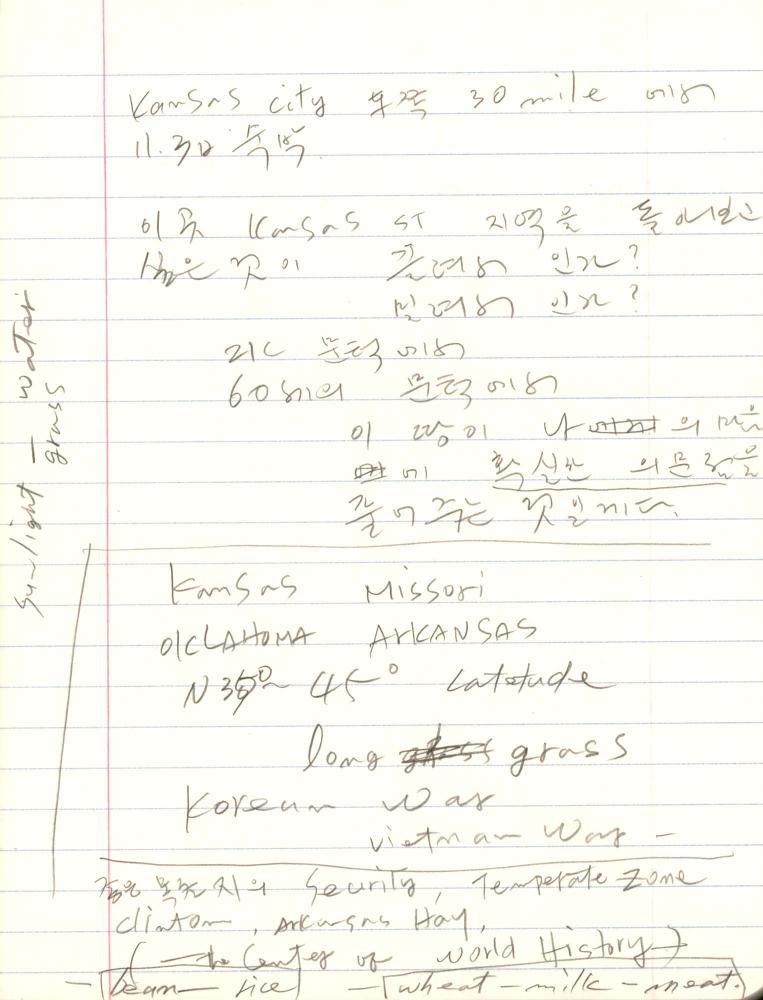 Kansas city 30 mile 에서
11.30 숙박
이 곳 Kansas ST 지역을 돌아보고
싶은 것이 끌려서 인가?
밀려서 인가?
21C 문턱에서
60세의 문턱에서
이 땅이 나 의 마음
에 확실한 의문점을
풀어 주는 것일게다.
Kansas Missori
OKLAHOMA ARKANSAS
N 35°~ 45° Latetude
long grass
Korean War
Vietnam War -
sunlight - water
grass
좋은 목초지의 Security, Temperate Zone
Clinton, Arkansas Hay,
( the Center of World History )
- bean - rice - wheat - milk - meat.